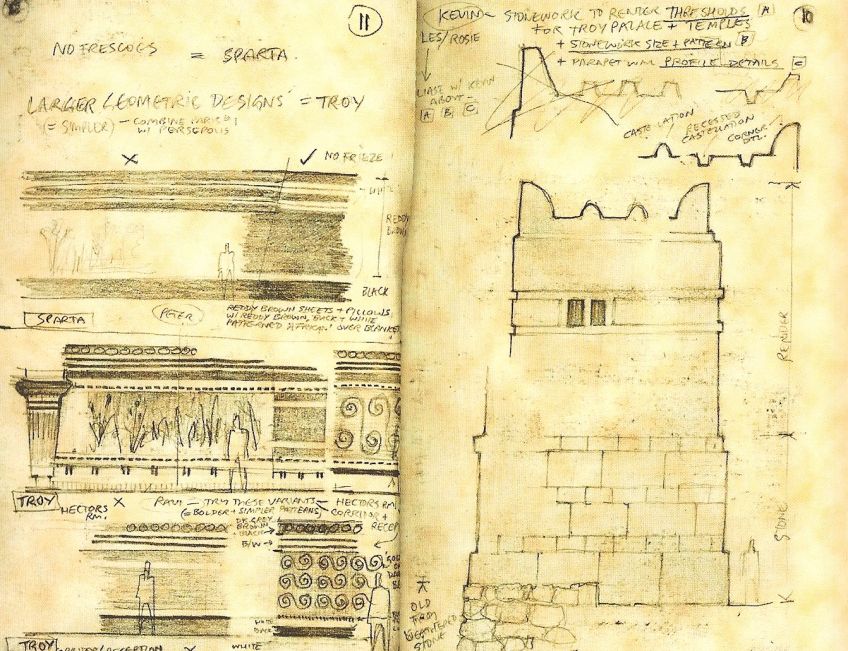 11
NO FRESCOES = SPARTA.
LARGER GEOMETRIC DESIGNS = TROY
(= SIMPLER) - COMBINE
W/ PERSEPOLIS
X
✓ NO FRIEZE
WHITE
REDDY
BROWN
BLACK
SPARTA
PETER
REDDY BROWN SHEETS + PILLOWS
W/ REDDY BROWN, BLACK + WHITE
PATTERNED OVER BLANKET
TROY
HECTORS
RM.
X
TRY THESE VARIANTS
(= BOLDER + SIMPLER PATTERNS)
HECTORS
CORRIDOR +
RECEP
BROWN
BLACK
B/W →
TROY
RECEPTION
X
WHITE
10
KEVIN - STONEWORK TO RENDER THRESHOLDS A
FOR TROY PALACE + TEMPLES
+ STONEWORK SIZE + PATTERN B
+ PARAPET WALL PROFILE DETAILS C
LES/ROSIE
LIASE W/ KEVIN
ABOUT -
A B C
CASTELLATION
RECESSED
CASTELLATION
CORNER
DTL.
RENDER
STONE
OLD
TROY
WEATHERED
STONE